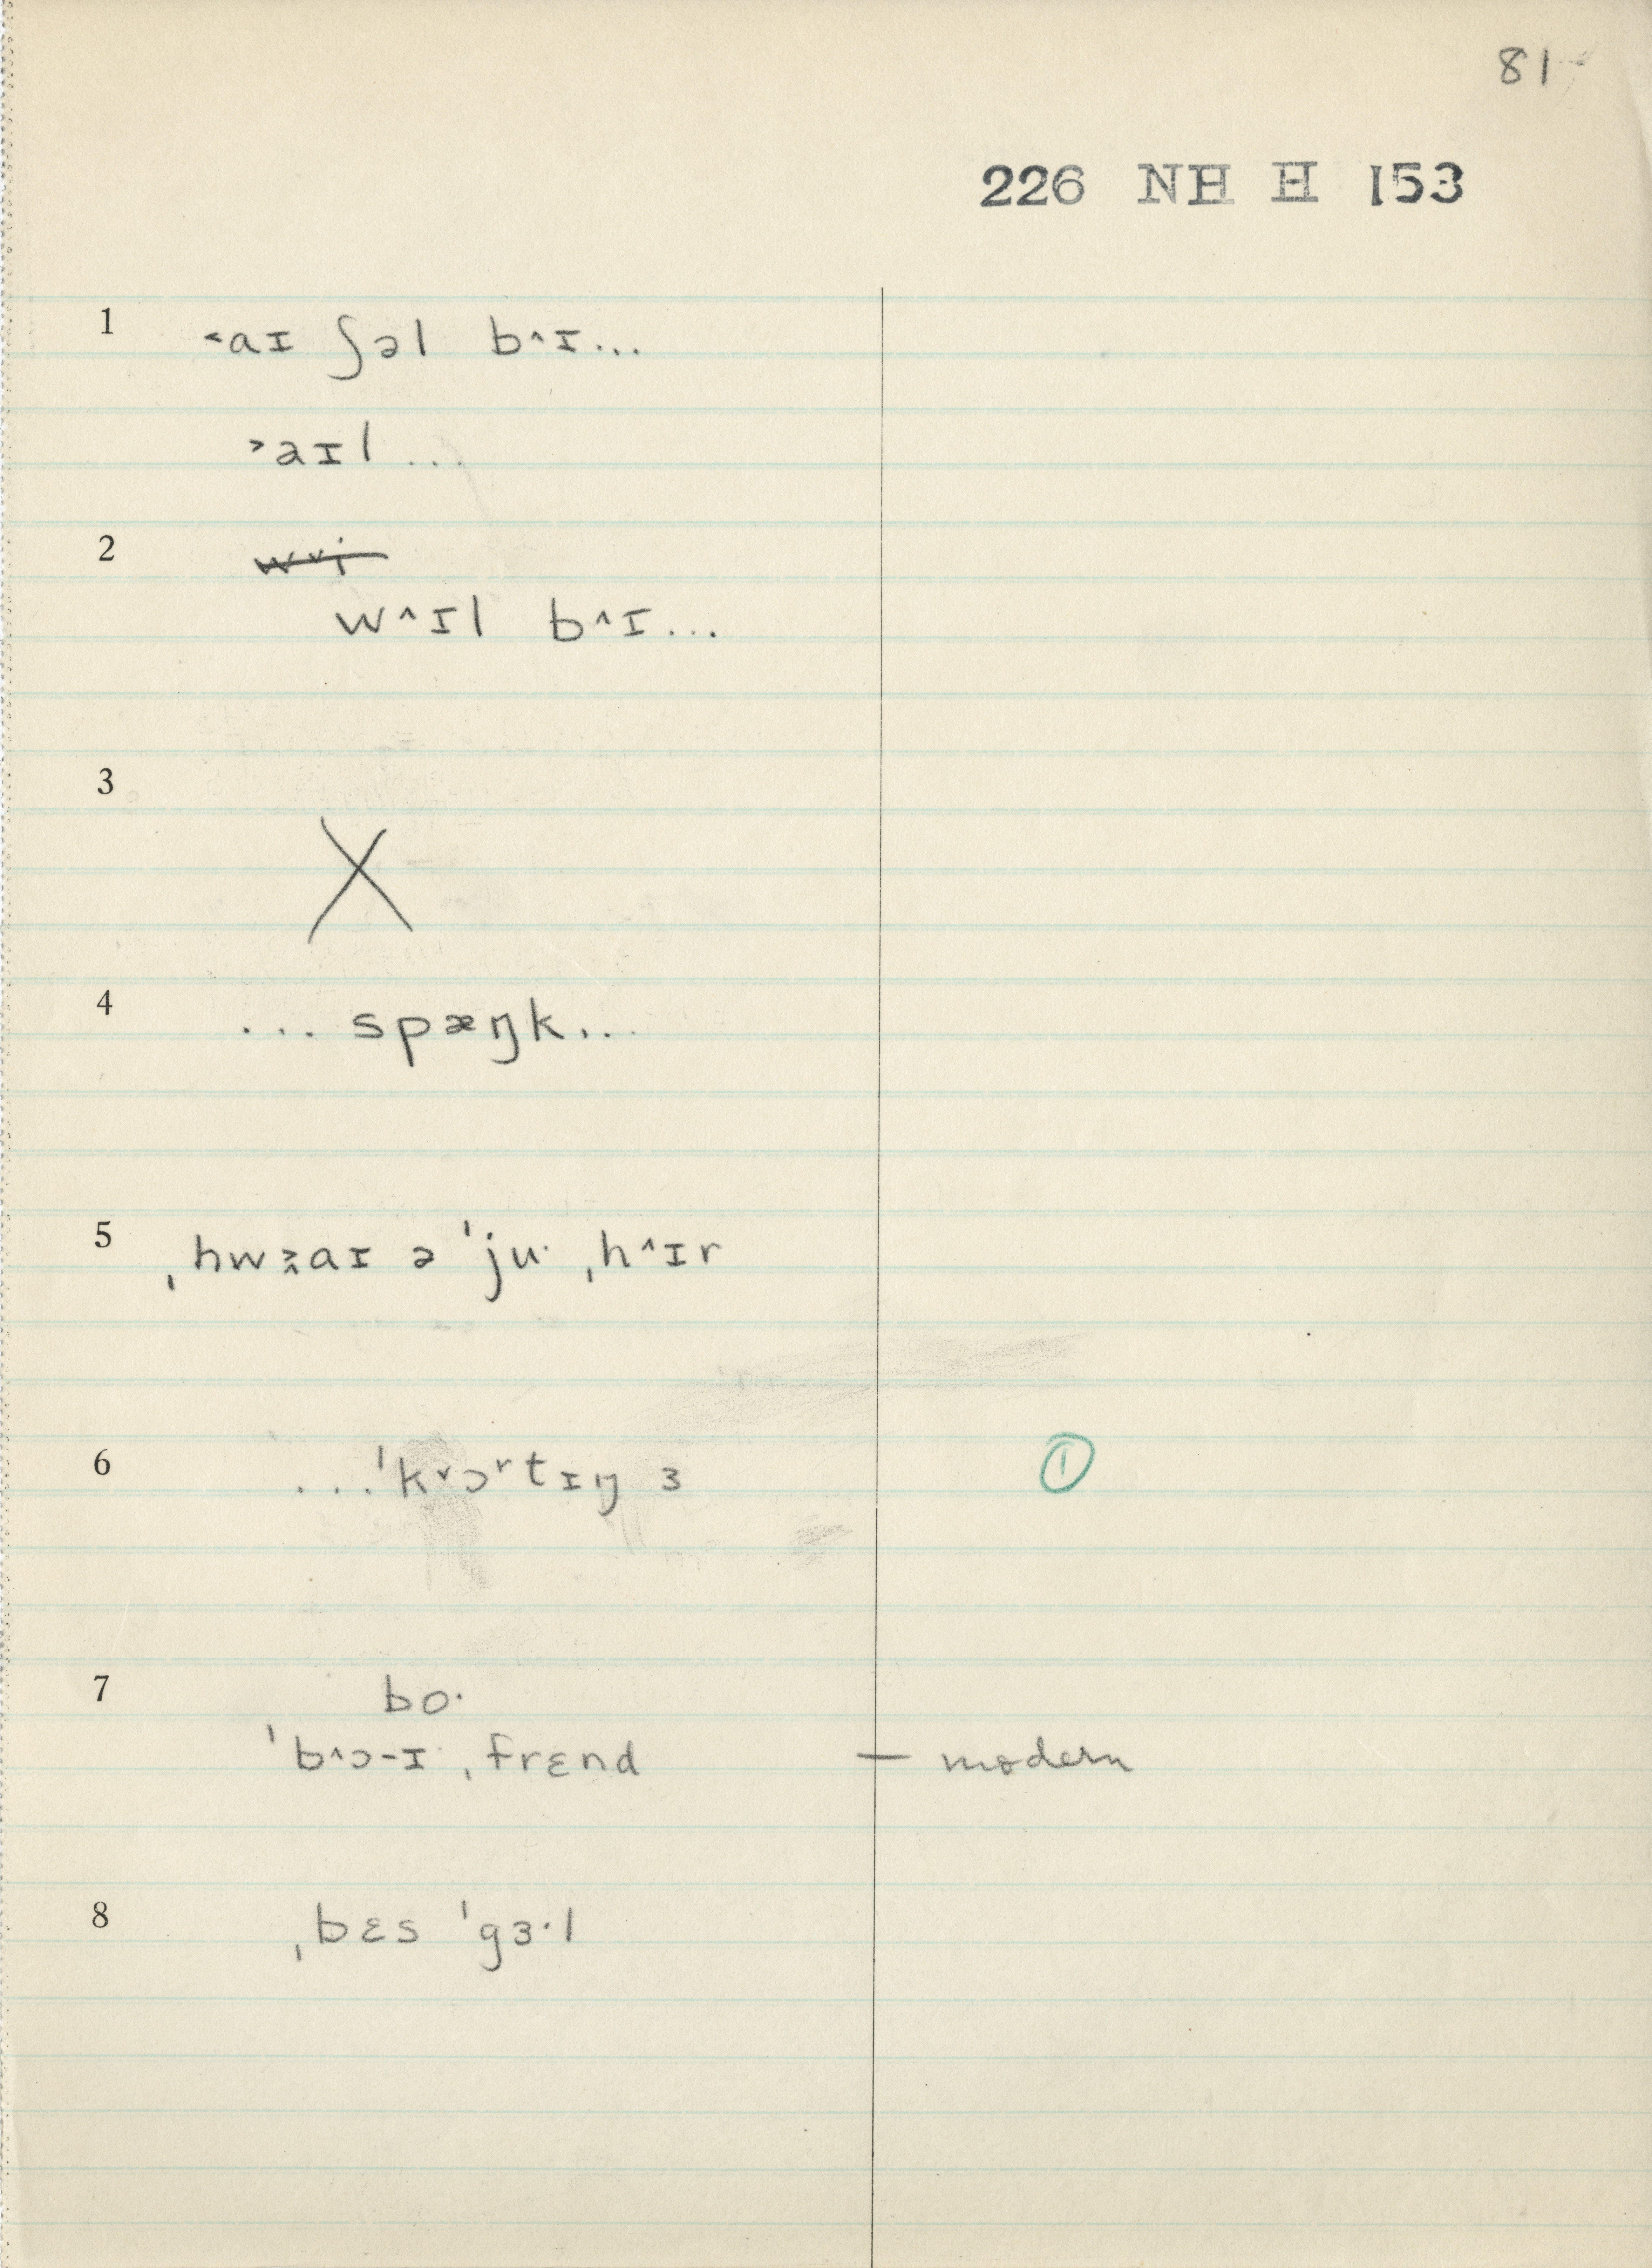 81
226 NH H 153
1 ˂aɪ ʃəl b^ɪ...
˃aɪl ...
2
w^ɪl b^ɪ...
3 X
4 ... spæŋk...
5 ˌhw꭛aɪ ə ˈju· ˌh^ɪr
6 ...ˈk˅ɔʳtɪŋ ɜ ①
7 bo·
ˈb^ɔ-ɪ ˌfrɛnd — modern
8 ˌbɛs ˈgɜ·l